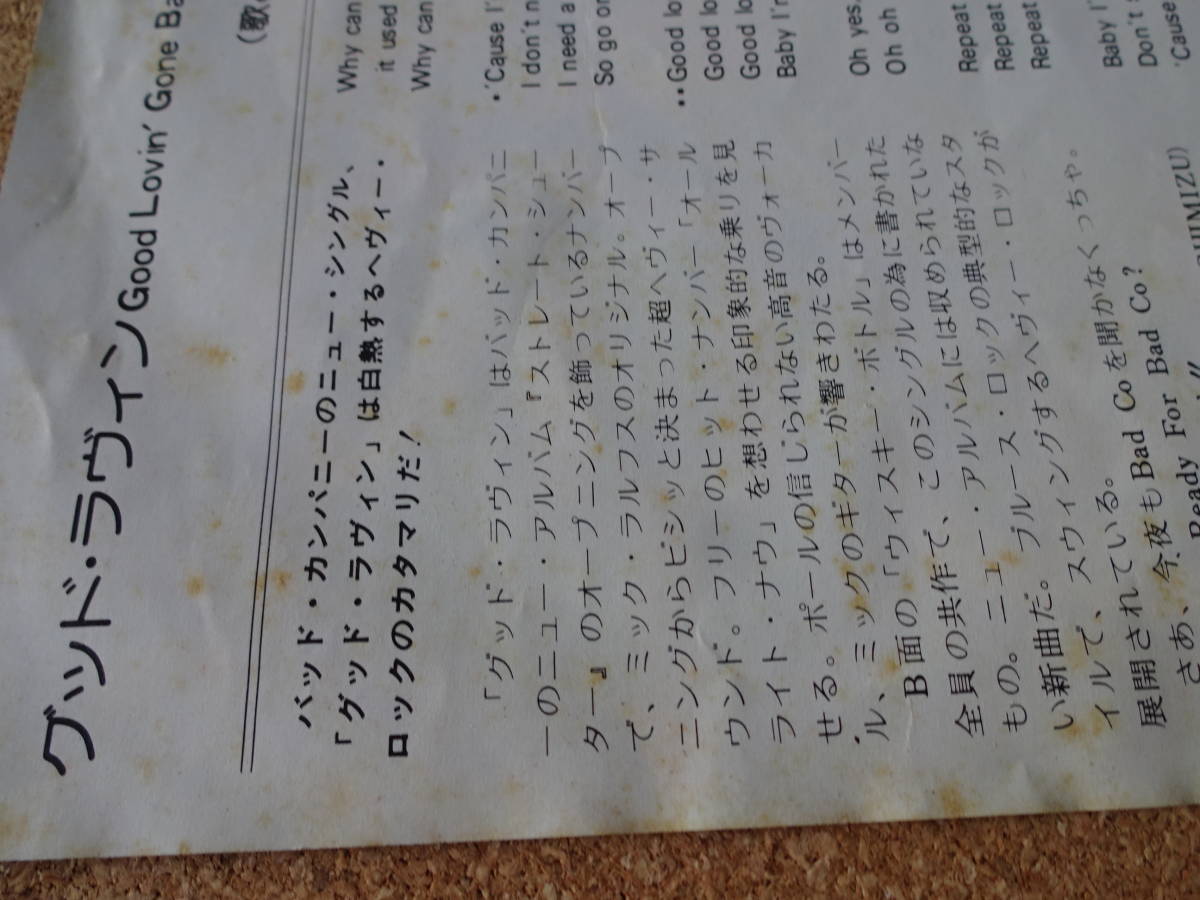 グッド・ラヴィン Good Lovin' Gone Ba
(歌
バッド・カンパニーのニュー・シングル、
「グッド・ラヴィン」は白熱するヘヴィー・
ロックのカタマリだ！
「グッド・ラヴィン」はバッド・カンパニ
ーのニュー・アルバム『ストレート・シュー
ター』のオープニングを飾っているナンバー
で、ミック・ラルフスのオリジナル。オープ
ニングからビシッと決まった超ヘヴィー・サ
ウンド。フリーのヒット・ナンバー「オール
ライト・ナウ」を想わせる印象的な乗りを見
せる。ポールの信じられない高音のヴォーカ
ル、ミックのギターが響きわたる。
B面の「ウィスキー・ボトル」はメンバー
全員の共作で、このシングルの為に書かれた
もの。ニュー・アルバムには収められていな
い新曲だ。ブルース・ロックの典型的なスタ
イルで、スウィングするヘヴィー・ロックが
展開されている。
さあ、今夜もBad Coを聞かなくっちゃ。
Ready For Bad Co?
Ready
HIMIZU)
Why can
it used
Why can
•'Cause I'
I don't n
I need a
So go on
••Good lo
Good lo
Good lo
Baby I'm
Oh yes,
Oh oh
Repeat
Repeat
Repeat
Baby I'
Don't
'Cause